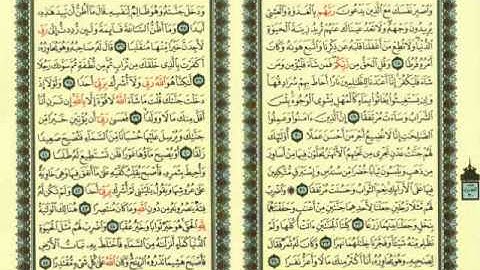 وَٱصْبِرْ نَفْسَكَ مَعَ ٱلَّذِينَ يَدْعُونَ رَبَّهُم بِٱلْغَدَوٰةِ وَٱلْعَشِىِّ
يُرِيدُونَ وَجْهَهُۥ وَلَا تَعْدُ عَيْنَاكَ عَنْهُمْ تُرِيدُ زِينَةَ ٱلْحَيَوٰةِ
ٱلدُّنْيَا وَلَا تُطِعْ مَنْ أَغْفَلْنَا قَلْبَهُۥ عَن ذِكْرِنَا وَٱتَّبَعَ هَوَىٰهُ وَكَانَ
أَمْرُهُۥ فُرُطًا ٢٨ وَقُلِ ٱلْحَقُّ مِن رَّبِّكُمْ فَمَن شَآءَ فَلْيُؤْمِن وَمَن
شَآءَ فَلْيَكْفُرْ إِنَّآ أَعْتَدْنَا لِلظَّٰلِمِينَ نَارًا أَحَاطَ بِهِمْ سُرَادِقُهَا
وَإِن يَسْتَغِيثُوا۟ يُغَاثُوا۟ بِمَآءٍ كَٱلْمُهْلِ يَشْوِى ٱلْوُجُوهَ بِئْسَ
ٱلشَّرَابُ وَسَآءَتْ مُرْتَفَقًا ٢٩ إِنَّ ٱلَّذِينَ ءَامَنُوا۟ وَعَمِلُوا۟
ٱلصَّٰلِحَٰتِ إِنَّا لَا نُضِيعُ أَجْرَ مَنْ أَحْسَنَ عَمَلًا ٣٠ أُو۟لَٰٓئِكَ
لَهُمْ جَنَّٰتُ عَدْنٍ تَجْرِى مِن تَحْتِهِمُ ٱلْأَنْهَٰرُ يُحَلَّوْنَ فِيهَا مِنْ أَسَاوِرَ
مِن ذَهَبٍ وَيَلْبَسُونَ ثِيَابًا خُضْرًا مِّن سُندُسٍ وَإِسْتَبْرَقٍ مُّتَّكِـِٔينَ
فِيهَا عَلَى ٱلْأَرَآئِكِ نِعْمَ ٱلثَّوَابُ وَحَسُنَتْ مُرْتَفَقًا ٣١ ۞ وَٱضْرِبْ
لَهُم مَّثَلًا رَّجُلَيْنِ جَعَلْنَا لِأَحَدِهِمَا جَنَّتَيْنِ مِنْ أَعْنَٰبٍ وَحَفَفْنَٰهُمَا
بِنَخْلٍ وَجَعَلْنَا بَيْنَهُمَا زَرْعًا ٣٢ كِلْتَا ٱلْجَنَّتَيْنِ ءَاتَتْ أُكُلَهَا وَلَمْ
تَظْلِم مِّنْهُ شَيْـًٔا وَفَجَّرْنَا خِلَٰلَهُمَا نَهَرًا ٣٣ وَكَانَ لَهُۥ ثَمَرٌ فَقَالَ
لِصَٰحِبِهِۦ وَهُوَ يُحَاوِرُهُۥٓ أَنَا۠ أَكْثَرُ مِنكَ مَالًا وَأَعَزُّ نَفَرًا ٣٤
وَدَخَلَ جَنَّتَهُۥ وَهُوَ ظَالِمٌ لِّنَفْسِهِۦ قَالَ مَآ أَظُنُّ أَن تَبِيدَ هَٰذِهِۦٓ
أَبَدًا ٣٥ وَمَآ أَظُنُّ ٱلسَّاعَةَ قَآئِمَةً وَلَئِن رُّدِدتُّ إِلَىٰ رَبِّى
لَأَجِدَنَّ خَيْرًا مِّنْهَا مُنقَلَبًا ٣٦ قَالَ لَهُۥ صَاحِبُهُۥ وَهُوَ يُحَاوِرُهُۥٓ
أَكَفَرْتَ بِٱلَّذِى خَلَقَكَ مِن تُرَابٍ ثُمَّ مِن نُّطْفَةٍ ثُمَّ سَوَّىٰكَ رَجُلًا
٣٧ لَّٰكِنَّا۠ هُوَ ٱللَّهُ رَبِّى وَلَآ أُشْرِكُ بِرَبِّىٓ أَحَدًا ٣٨ وَلَوْلَآ إِذْ
دَخَلْتَ جَنَّتَكَ قُلْتَ مَا شَآءَ ٱللَّهُ لَا قُوَّةَ إِلَّا بِٱللَّهِ إِن تَرَنِ أَنَا۠
أَقَلَّ مِنكَ مَالًا وَوَلَدًا ٣٩ فَعَسَىٰ رَبِّىٓ أَن يُؤْتِيَنِ خَيْرًا مِّن
جَنَّتِكَ وَيُرْسِلَ عَلَيْهَا حُسْبَانًا مِّنَ ٱلسَّمَآءِ فَتُصْبِحَ صَعِيدًا
زَلَقًا ٤٠ أَوْ يُصْبِحَ مَآؤُهَا غَوْرًا فَلَن تَسْتَطِيعَ لَهُۥ طَلَبًا ٤١
وَأُحِيطَ بِثَمَرِهِۦ فَأَصْبَحَ يُقَلِّبُ كَفَّيْهِ عَلَىٰ مَآ أَنفَقَ فِيهَا وَهِىَ خَاوِيَةٌ
عَلَىٰ عُرُوشِهَا وَيَقُولُ يَٰلَيْتَنِى لَمْ أُشْرِكْ بِرَبِّىٓ أَحَدًا ٤٢ وَلَمْ تَكُن لَّهُۥ
فِئَةٌ يَنصُرُونَهُۥ مِن دُونِ ٱللَّهِ وَمَا كَانَ مُنتَصِرًا ٤٣ هُنَالِكَ ٱلْوَلَٰيَةُ
لِلَّهِ ٱلْحَقِّ هُوَ خَيْرٌ ثَوَابًا وَخَيْرٌ عُقْبًا ٤٤ وَٱضْرِبْ لَهُم مَّثَلَ ٱلْحَيَوٰةِ
ٱلدُّنْيَا كَمَآءٍ أَنزَلْنَٰهُ مِنَ ٱلسَّمَآءِ فَٱخْتَلَطَ بِهِۦ نَبَاتُ ٱلْأَرْضِ
فَأَصْبَحَ هَشِيمًا تَذْرُوهُ ٱلرِّيَٰحُ وَكَانَ ٱللَّهُ عَلَىٰ كُلِّ شَىْءٍ مُّقْتَدِرًا ٤٥